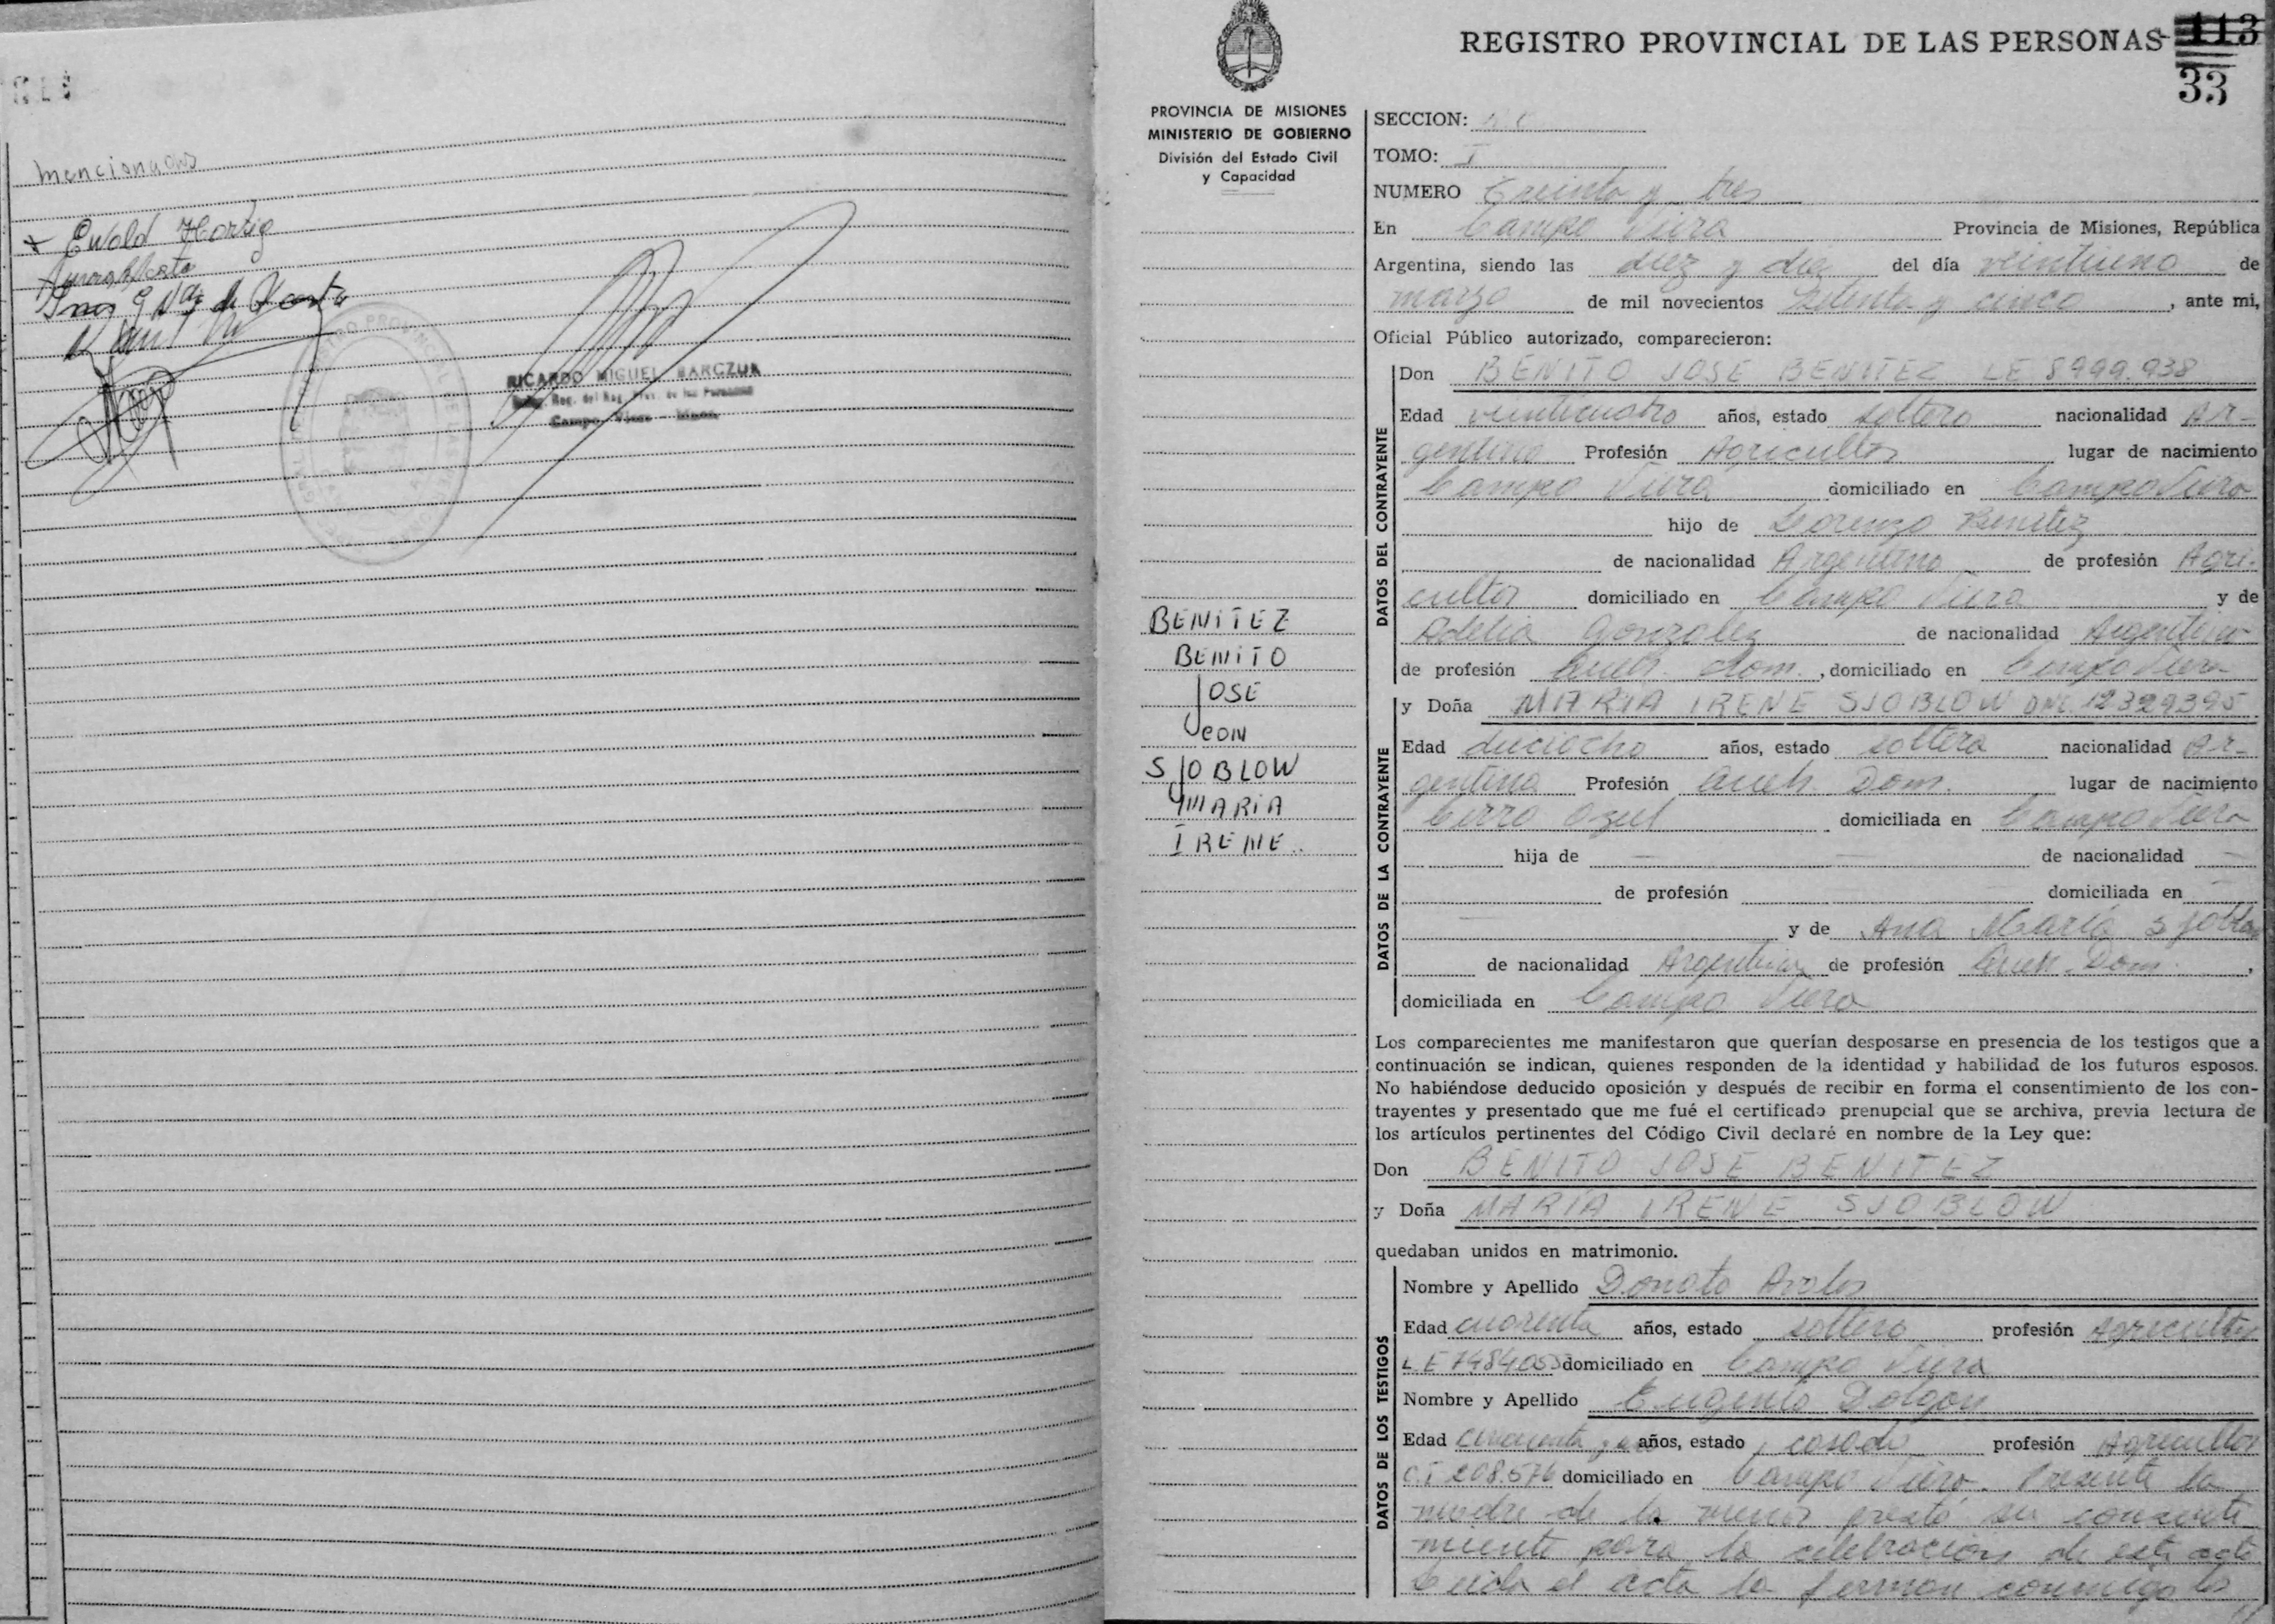 mencionados
Ewald Hortig
RICARDO MIGUEL BARCZUK
Campo Viera - Mnes.
REGISTRO PROVINCIAL DE LAS PERSONAS 113
33
PROVINCIA DE MISIONES
MINISTERIO DE GOBIERNO
División del Estado Civil
y Capacidad
BENITEZ
BENITO
JOSE
CON
SJOBLOW
MARIA
IRENE
SECCION:
TOMO: I
NUMERO Treinta y tres
En Campo Viera Provincia de Misiones, República
Argentina, siendo las diez y diez del día veintiuno de
marzo de mil novecientos setenta y cinco, ante mi,
Oficial Público autorizado, comparecieron:
DATOS DEL CONTRAYENTE
Don BENITO JOSE BENITEZ LE 8999.938
Edad veinticuatro años, estado soltero nacionalidad Ar-
gentino Profesión Agricultor lugar de nacimiento
Campo Viera domiciliado en Campo Viera
hijo de Lorenzo Benitez
de nacionalidad Argentino de profesión Agri-
cultor domiciliado en Campo Viera y de
Adelia Gonzalez de nacionalidad Argentina
de profesión Queh. Dom., domiciliado en Campo Viera
DATOS DE LA CONTRAYENTE
y Doña MARIA IRENE SJOBLOW DNI. 12329395
Edad dieciocho años, estado soltera nacionalidad Ar-
gentina Profesión Queh. Dom. lugar de nacimiento
Cerro Azul domiciliada en Campo Viera
hija de — — de nacionalidad —
de profesión domiciliada en —
y de Ana Maria Sjoblow
de nacionalidad Argentina de profesión Queh. Dom.,
domiciliada en Campo Viera
Los comparecientes me manifestaron que querían desposarse en presencia de los testigos que a
continuación se indican, quienes responden de la identidad y habilidad de los futuros esposos.
No habiéndose deducido oposición y después de recibir en forma el consentimiento de los con-
trayentes y presentado que me fué el certificado prenupcial que se archiva, previa lectura de
los artículos pertinentes del Código Civil declaré en nombre de la Ley que:
Don BENITO JOSE BENITEZ
y Doña MARIA IRENE SJOBLOW
quedaban unidos en matrimonio.
DATOS DE LOS TESTIGOS
Nombre y Apellido Donato Avalos
Edad cuarenta años, estado soltero profesión Agricultor
L.E domiciliado en Campo Viera
Nombre y Apellido Eugenio Dolgon
Edad cincuenta y años, estado casado profesión Agricultor
C.I 208.576 domiciliado en Campo Viera. Presente la
madre de la menor prestó su consenti-
miento para la celebracion de este acto
Leida el acta la firman conmigo los